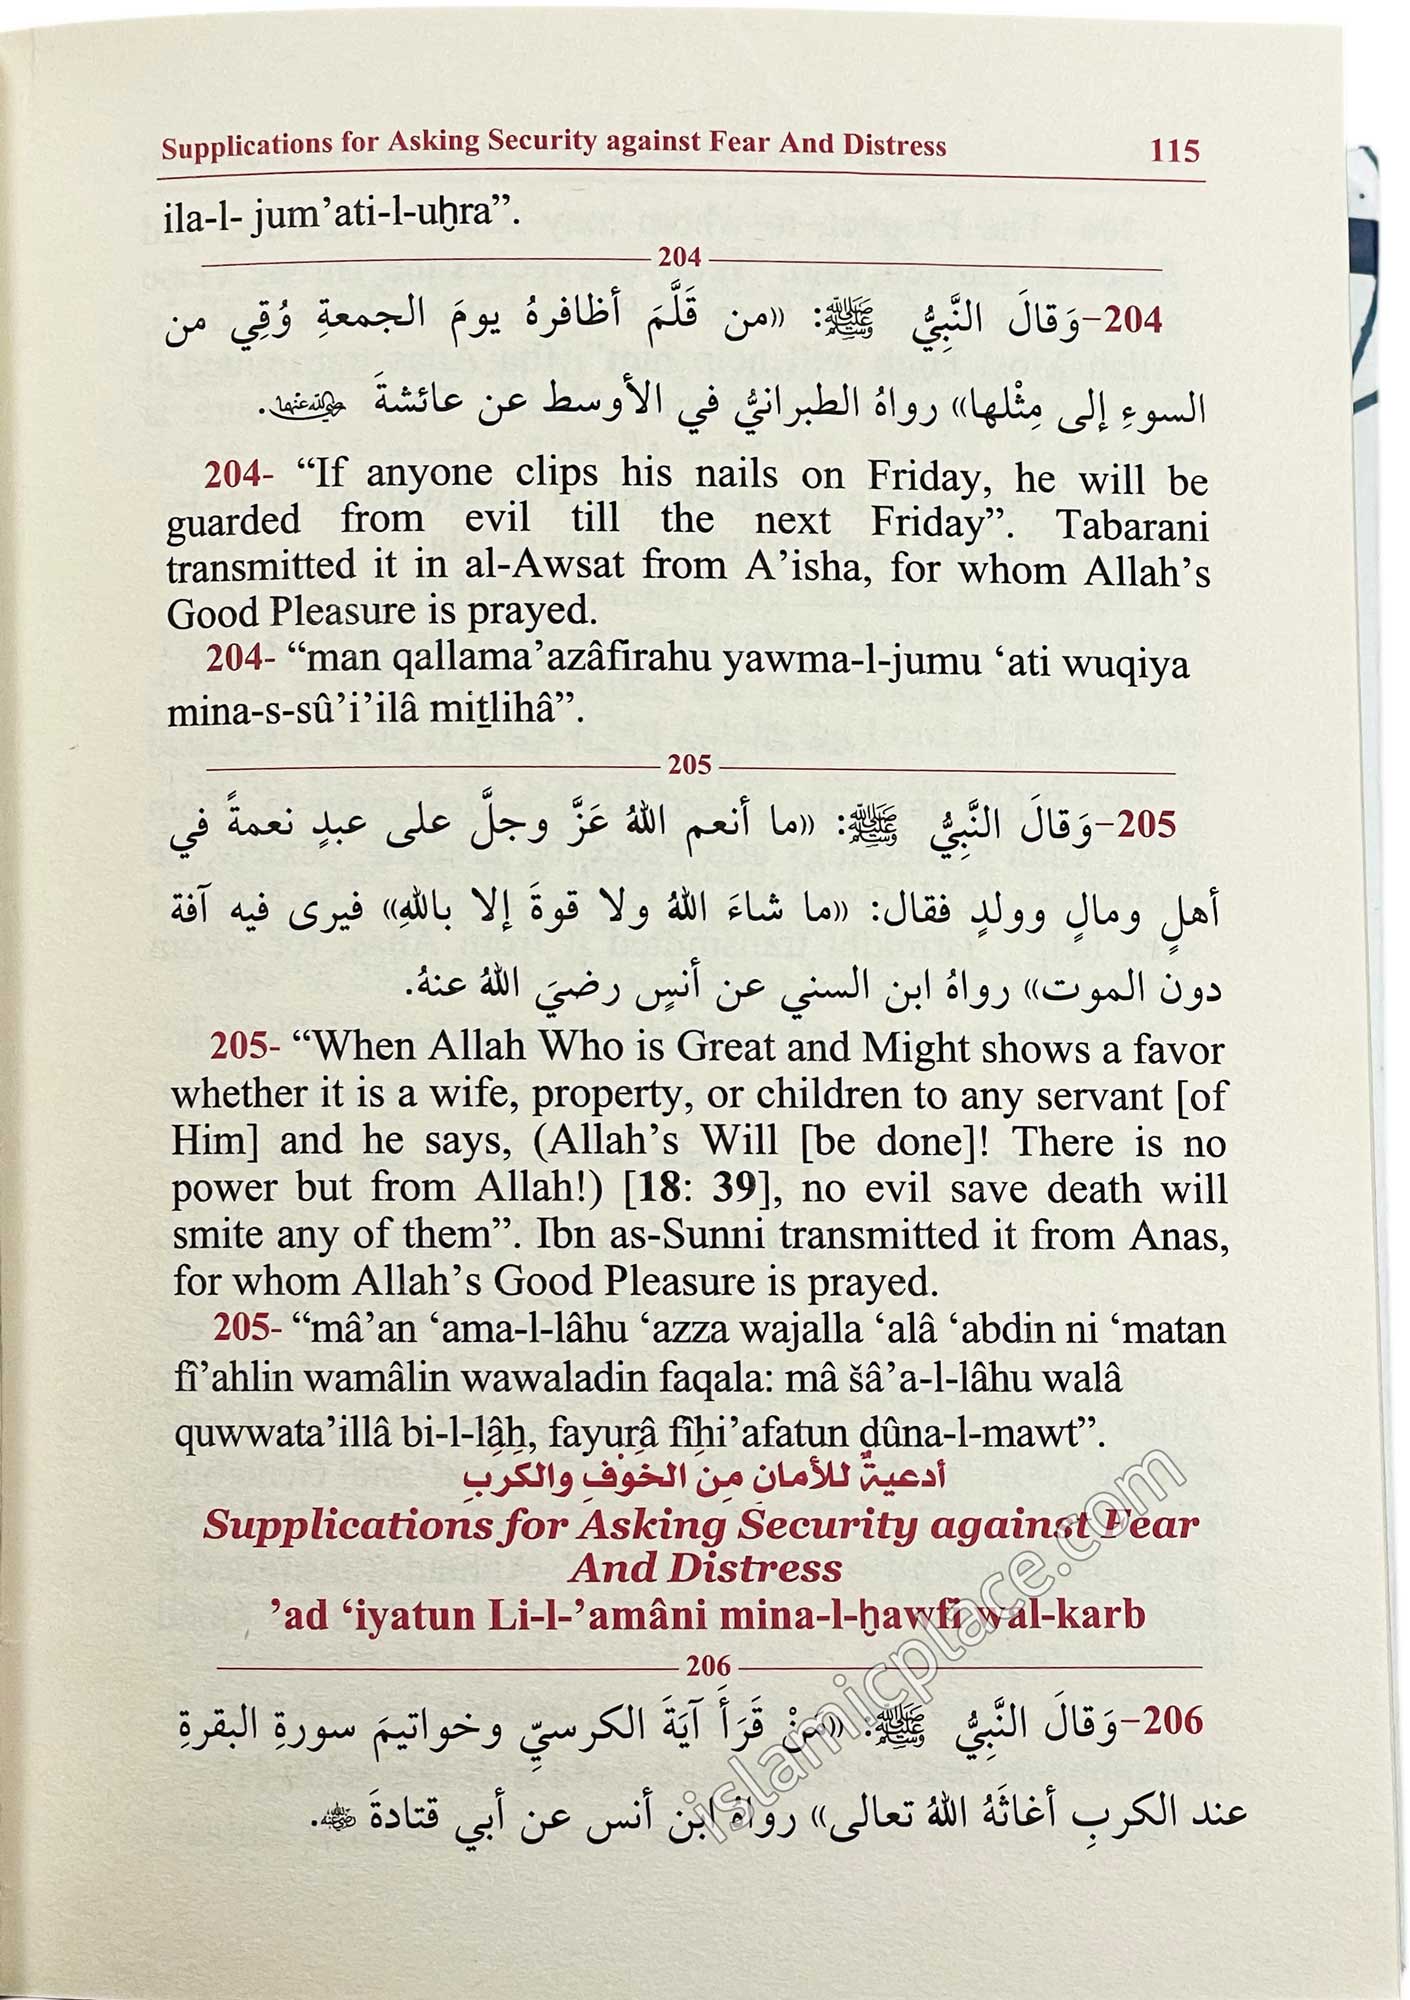 Supplications for Asking Security against Fear And Distress 115
ila-l- jum’ati-l-uẖra”.
204
204-وَقالَ النَّبِيُّ ﷺ: «من قَلَّمَ أظافرهُ يومَ الجمعةِ وُقِي من
السوءِ إلى مِثْلها» رواهُ الطبرانيُّ في الأوسط عن عائشةَ رضي الله عنها.
204- “If anyone clips his nails on Friday, he will be
guarded from evil till the next Friday”. Tabarani
transmitted it in al-Awsat from A’isha, for whom Allah’s
Good Pleasure is prayed.
204- “man qallama’azâfirahu yawma-l-jumu ‘ati wuqiya
mina-s-sû’i’ilâ miṯlihâ”.
205
205-وَقالَ النَّبِيُّ ﷺ: «ما أنعم اللهُ عَزَّ وجلَّ على عبدٍ نعمةً في
أهلٍ ومالٍ وولدٍ فقال: «ما شاءَ اللهُ ولا قوةَ إلا باللهِ» فيرى فيه آفة
دون الموت» رواهُ ابن السني عن أنسٍ رضيَ اللهُ عنهُ.
205- “When Allah Who is Great and Might shows a favor
whether it is a wife, property, or children to any servant [of
Him] and he says, (Allah’s Will [be done]! There is no
power but from Allah!) [18: 39], no evil save death will
smite any of them”. Ibn as-Sunni transmitted it from Anas,
for whom Allah’s Good Pleasure is prayed.
205- “mâ’an ‘ama-l-lâhu ‘azza wajalla ‘alâ ‘abdin ni ‘matan
fî’ahlin wamâlin wawaladin faqala: mâ šâ’a-l-lâhu walâ
quwwata’illâ bi-l-lâh, fayurâ fîhi’afatun dûna-l-mawt”.
أدعيةٌ للأمانِ مِنَ الخَوْفِ والكَربِ
Supplications for Asking Security against Fear
And Distress
’ad ‘iyatun Li-l-’amâni mina-l-ẖawfi wal-karb
206
206-وَقالَ النَّبِيُّ ﷺ: «مَنْ قَرَأَ آيَةَ الكرسيِّ وخواتيمَ سورةِ البقرةِ
عند الكربِ أغاثَهُ اللهُ تعالى» رواهُ ابن أنس عن أبي قتادةَ رضي الله عنه.
islamicplace.com